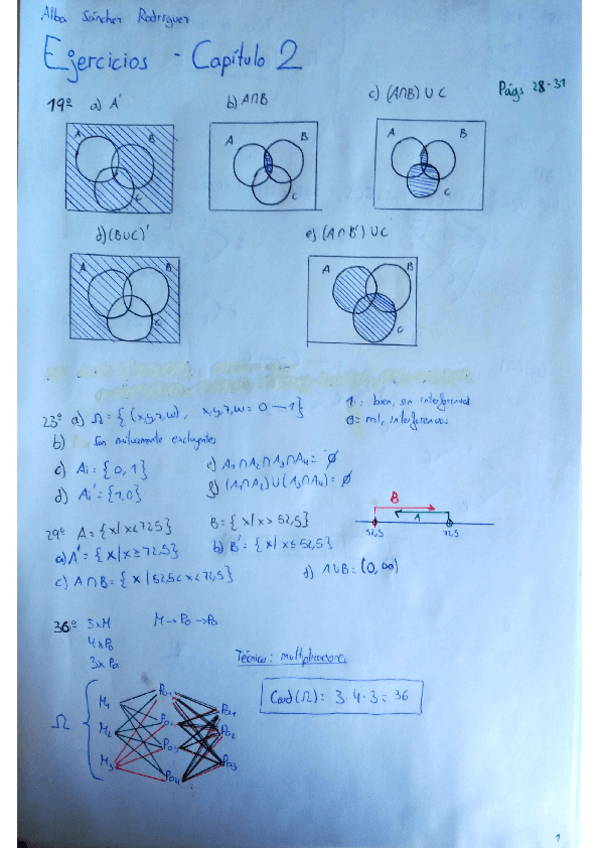 Alba Sánchez Rodríguez
Ejercicios - Capítulo 2
Págs 28-31
19º a) A' b) A∩B c) (A∩B) ∪ C
A B C
A B C
A B C
d) (B∪C)' e) (A∩B') ∪ C
A B C
A B C
23º a) Ω = { (x,y,z,w), x,y,z,w = 0—1}
1: bien, sin interferencia
0= mal, interferencias
b) Son mutuamente excluyentes
c) Ai = {0,1} e) A1∩A2∩A3∩A4 = ∅
d) Ai' = {1,0} f) (A1∩A2)∪(A3∩A4) = ∅
29º A = {x/ x<72,5} B = {x/ x> 52,5}
B
A
52,5 72,5
a) A' = {x/x ≥ 72,5} b) B' = {x/ x ≤ 52,5}
c) A∩B = {x/ 52,5<x<72,5} d) A∪B = (0, ∞)
36º 3xM M → Po → Pa
4xPo
3xPa
Técnica: multiplicadora
Card(Ω) = 3·4·3 = 36
Ω
M1 Po1
M2 Po2 Pa1
M3 Po3 Pa2
Po4 Pa3
1